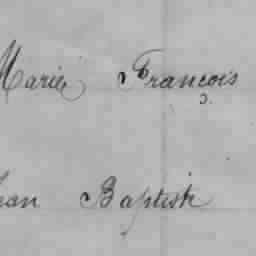 Marie François
Jean Baptiste